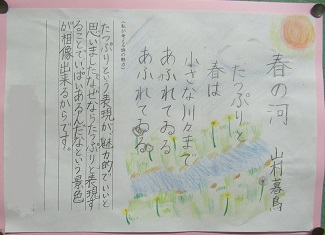 春の河　山村暮鳥
たっぷりと
春は
小さな川々まで
あふれてゐる
あふれてゐる
(私が考える詩の魅力)
たっぷりという表現が、魅力的でいいと
思いました。なぜならたっぷりと表現す
ることでいっぱいあるんだなという景色
が想像出来るからです。